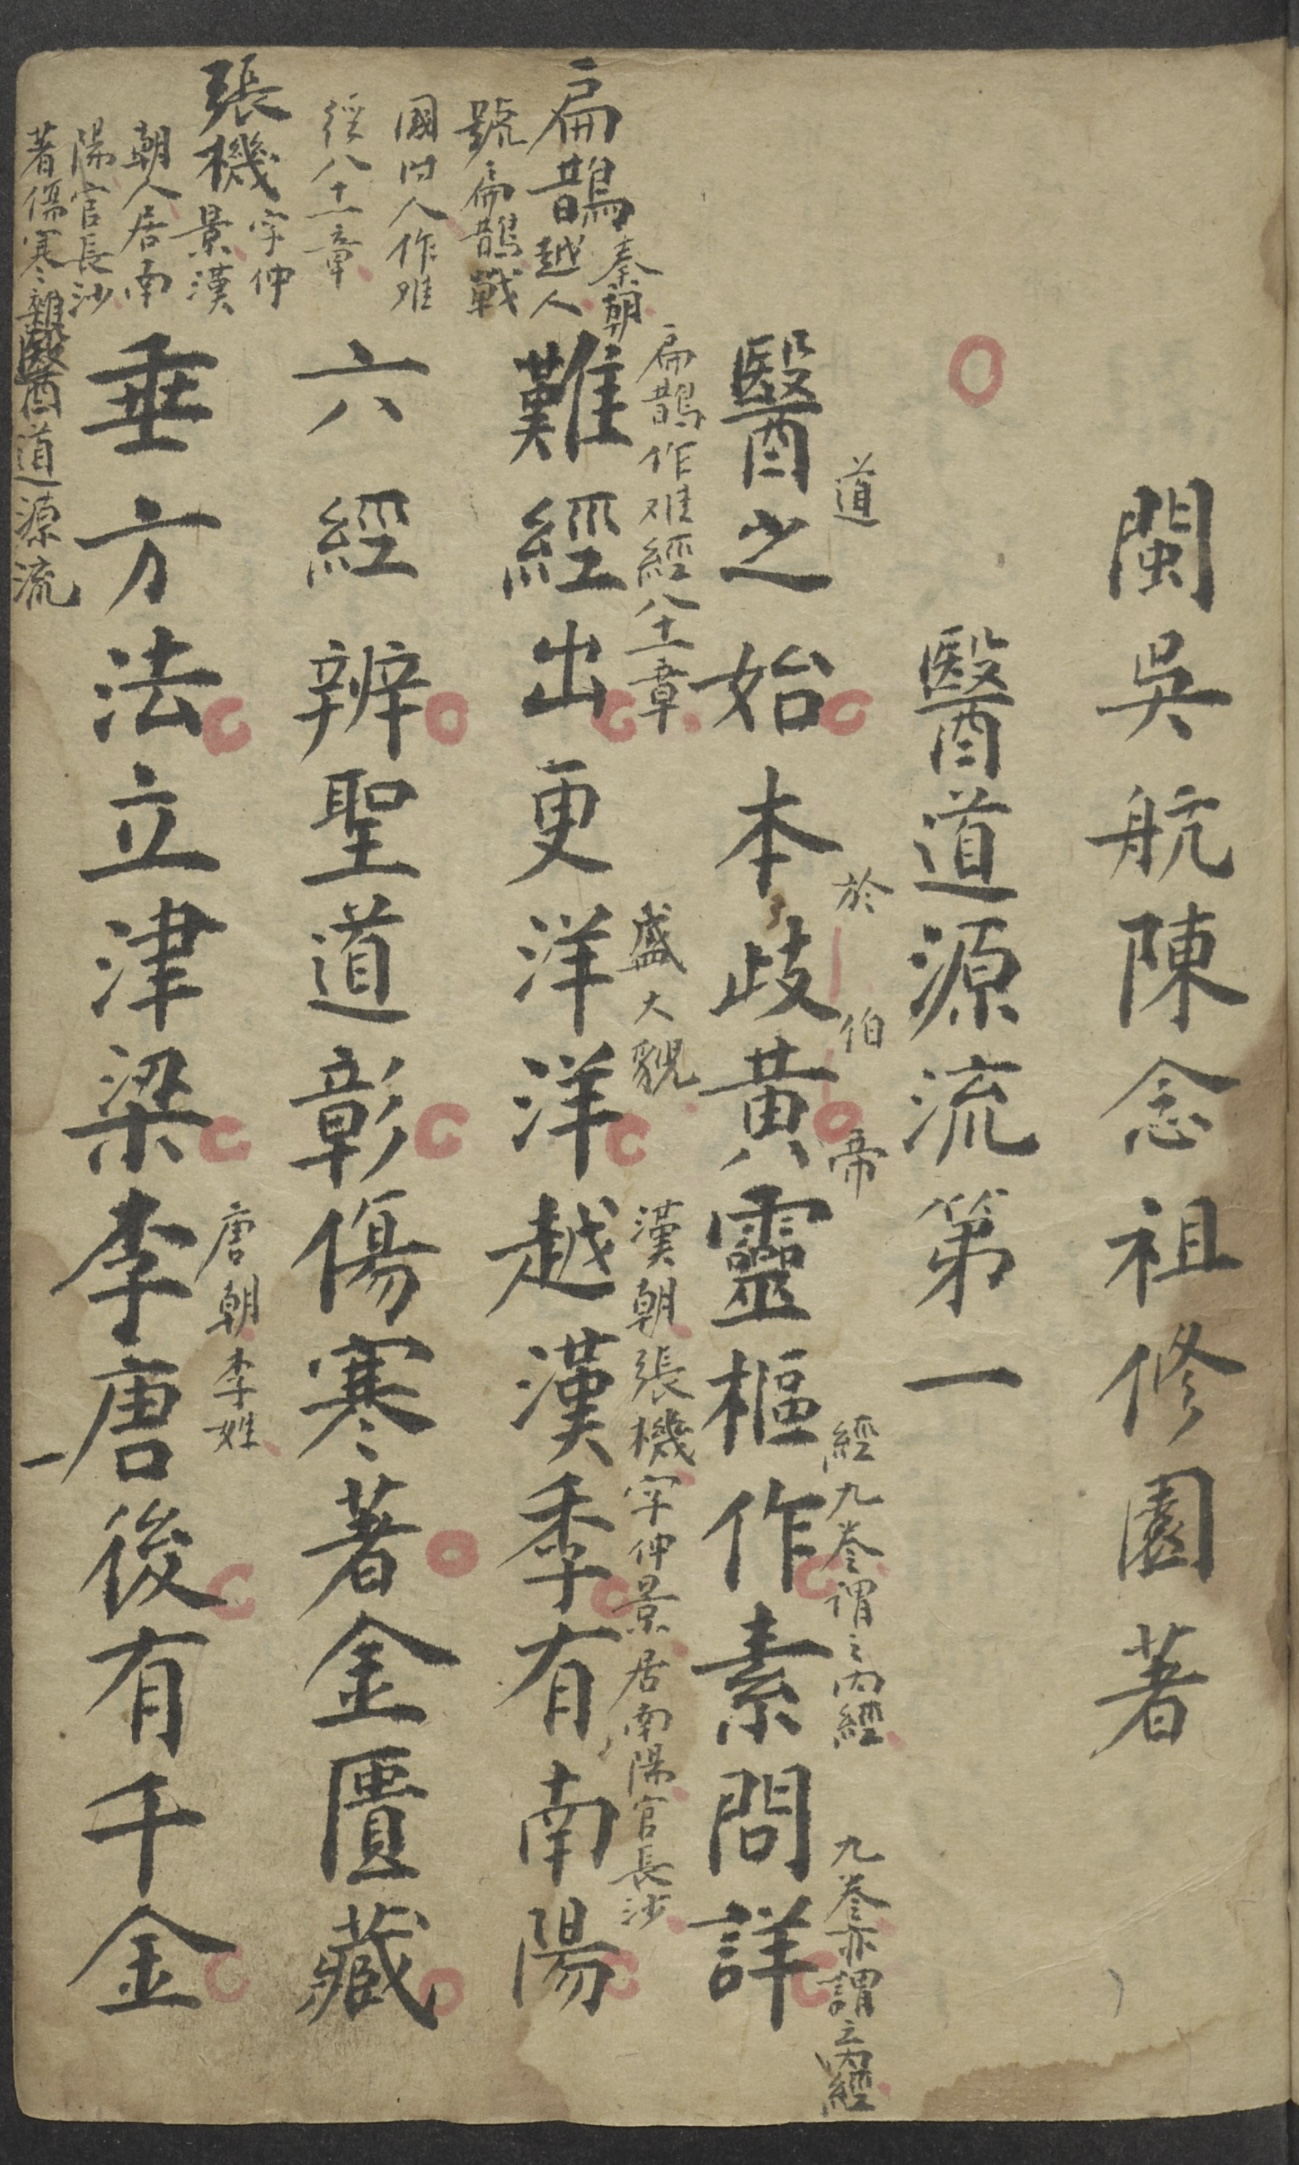 閩吳航陳念祖修園著
醫道源流第一
道
於
伯
帝
經九卷謂之內經
九卷亦謂之內經
醫之始本歧黃靈樞作素問詳
扁鵲作难經八十一章
盛大貌
漢朝張機字仲景居南陽官長沙
難經出更洋洋越漢季有南陽
六經辨聖道彰傷寒著金匱藏
唐朝李姓
垂方法立津梁李唐後有千金
扁鵲秦朝
越人
號扁鵲戰
國时人作难
經八十一章
張機字仲
景漢
朝人居南
陽官長沙
著傷寒雜
醫道源流
一